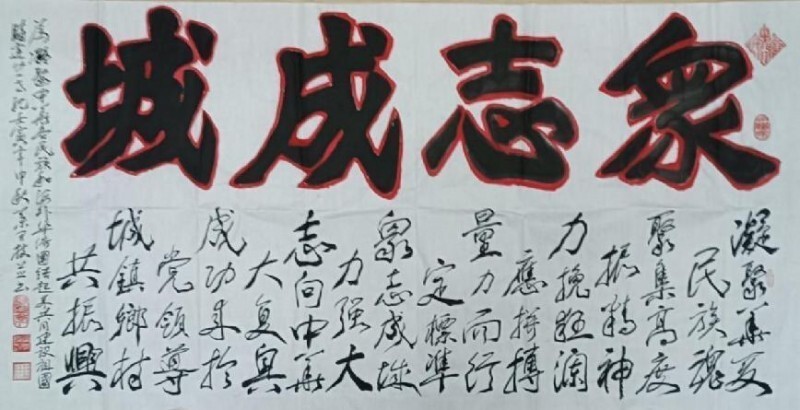 眾志成城
凝聚華夏
民族魂
聚集高度
振精神
力挽狂瀾
應拼搏
量力而行
定標準
眾志成城
力强大
志向中華
大復興
成功來於
黨領導
城鎮鄉村
共振興